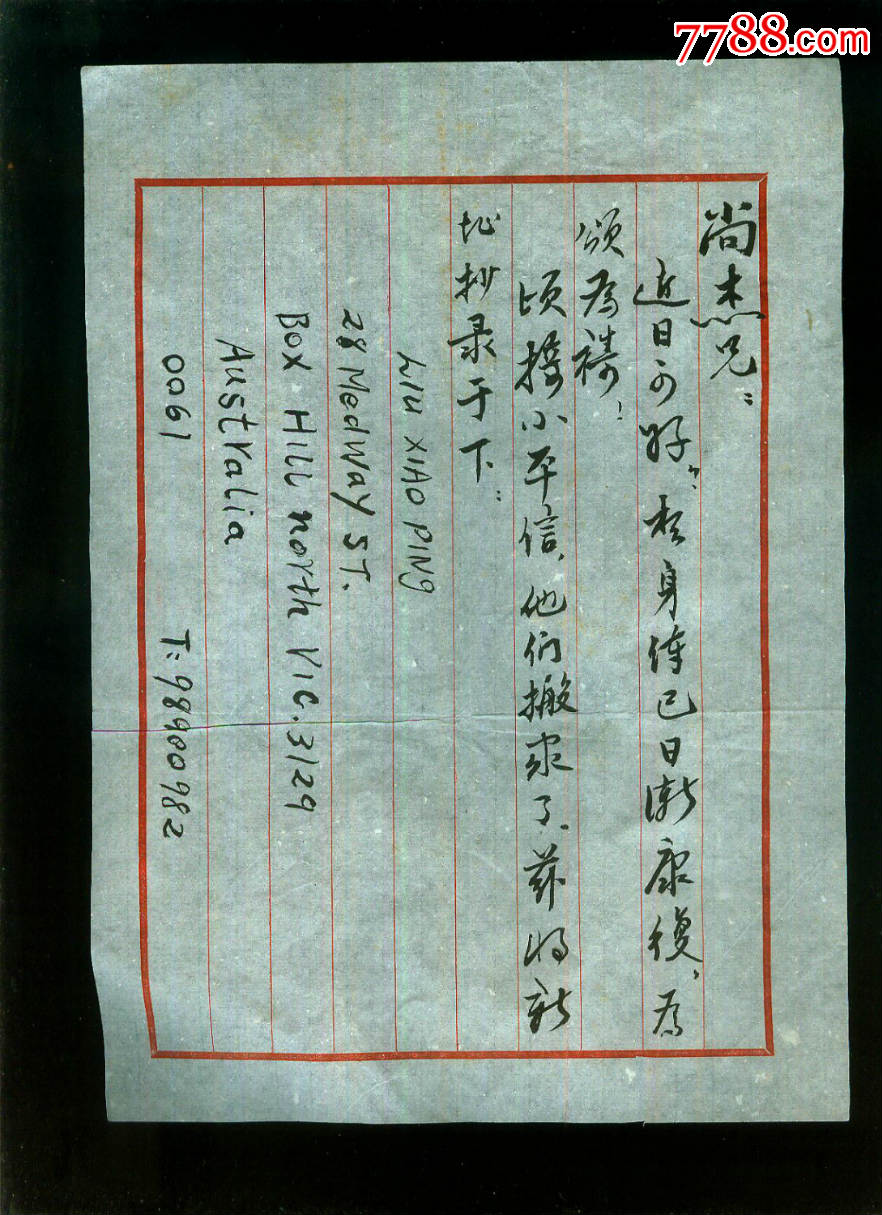 7788.com
尚杰兄：
近日可好？想身体已日渐康復，為
颂為祷！
顷接小平信，他们搬家了，兹将新
址抄录于下：
LIU XIAO PING
28 Medway ST.
Box HILL north VIC. 3129
Australia
0061 T: 98900982